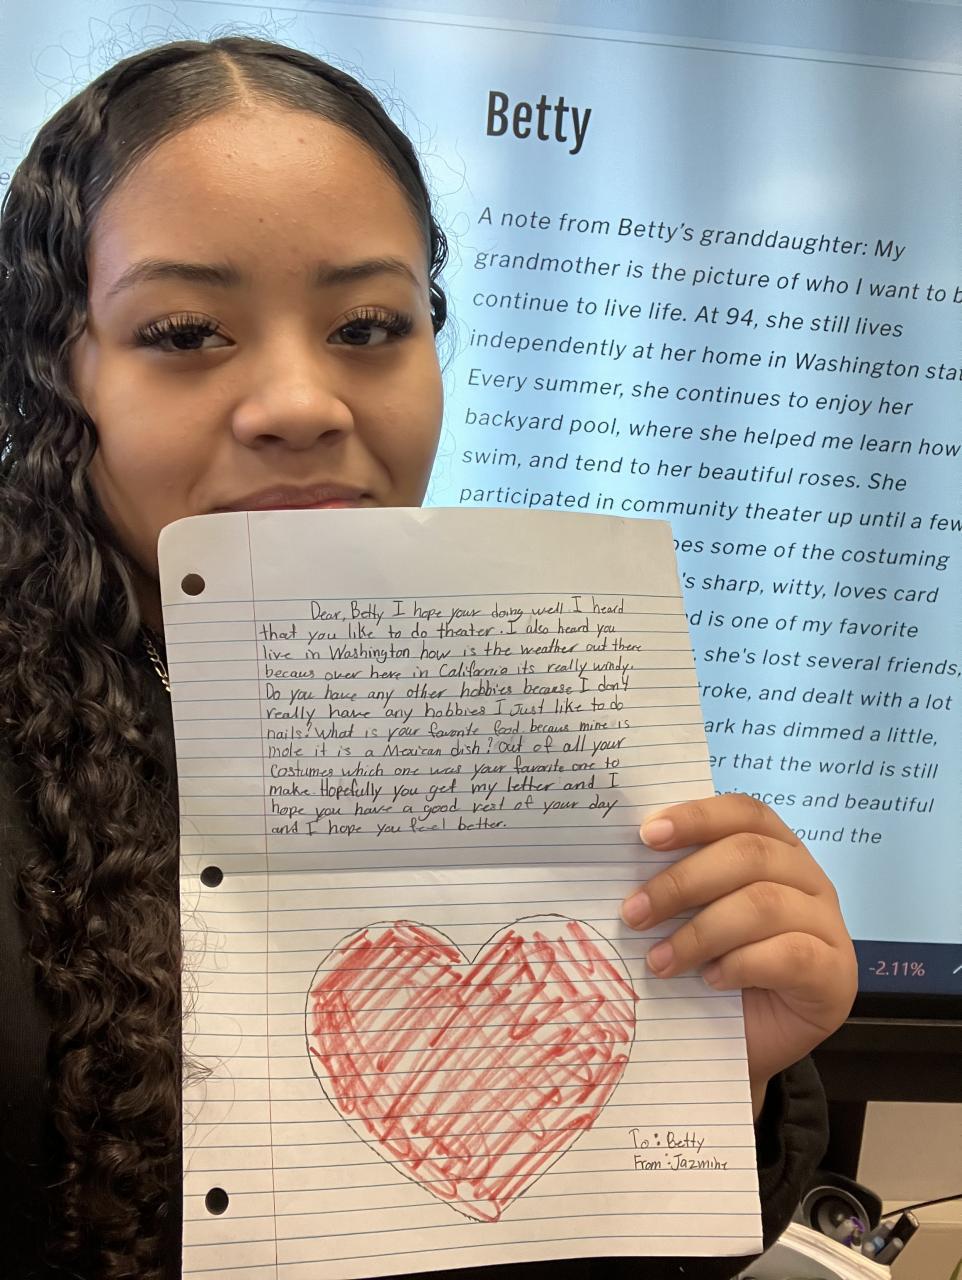 Betty
A note from Betty's granddaughter: My
grandmother is the picture of who I want to b
continue to live life. At 94, she still lives
independently at her home in Washington stat
Every summer, she continues to enjoy her
backyard pool, where she helped me learn how
swim, and tend to her beautiful roses. She
participated in community theater up until a few
oes some of the costuming
's sharp, witty, loves card
d is one of my favorite
, she's lost several friends,
roke, and dealt with a lot
ark has dimmed a little,
er that the world is still
eriences and beautiful
ound the
-2.11%
Dear, Betty I hope your doing well I heard
that you like to do theater. I also heard you
live in Washington how is the weather out there
becaus over here in California its really windy.
Do you have any other hobbies because I don't
really have any hobbies I Just like to do
nails? What is your favorite food becaus mine is
mole it is a Mexican dish? Out of all your
Costumes which one was your favorite one to
make. Hopefully you get my letter and I
hope you have a good rest of your day
and I hope you feel better.
To: Betty
From: Jazmine